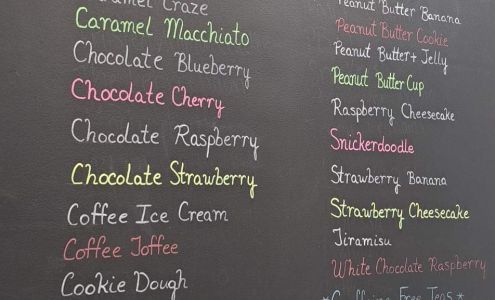 Caramel Craze
Caramel Macchiato
Chocolate Blueberry
Chocolate Cherry
Chocolate Raspberry
Chocolate Strawberry
Coffee Ice Cream
Coffee Toffee
Cookie Dough
Peanut Butter Banana
Peanut Butter Cookie
Peanut Butter + Jelly
Peanut Butter Cup
Raspberry Cheesecake
Snickerdoodle
Strawberry Banana
Strawberry Cheesecake
Tiramisu
White Chocolate Raspberry
*Caffeine Free Teas*